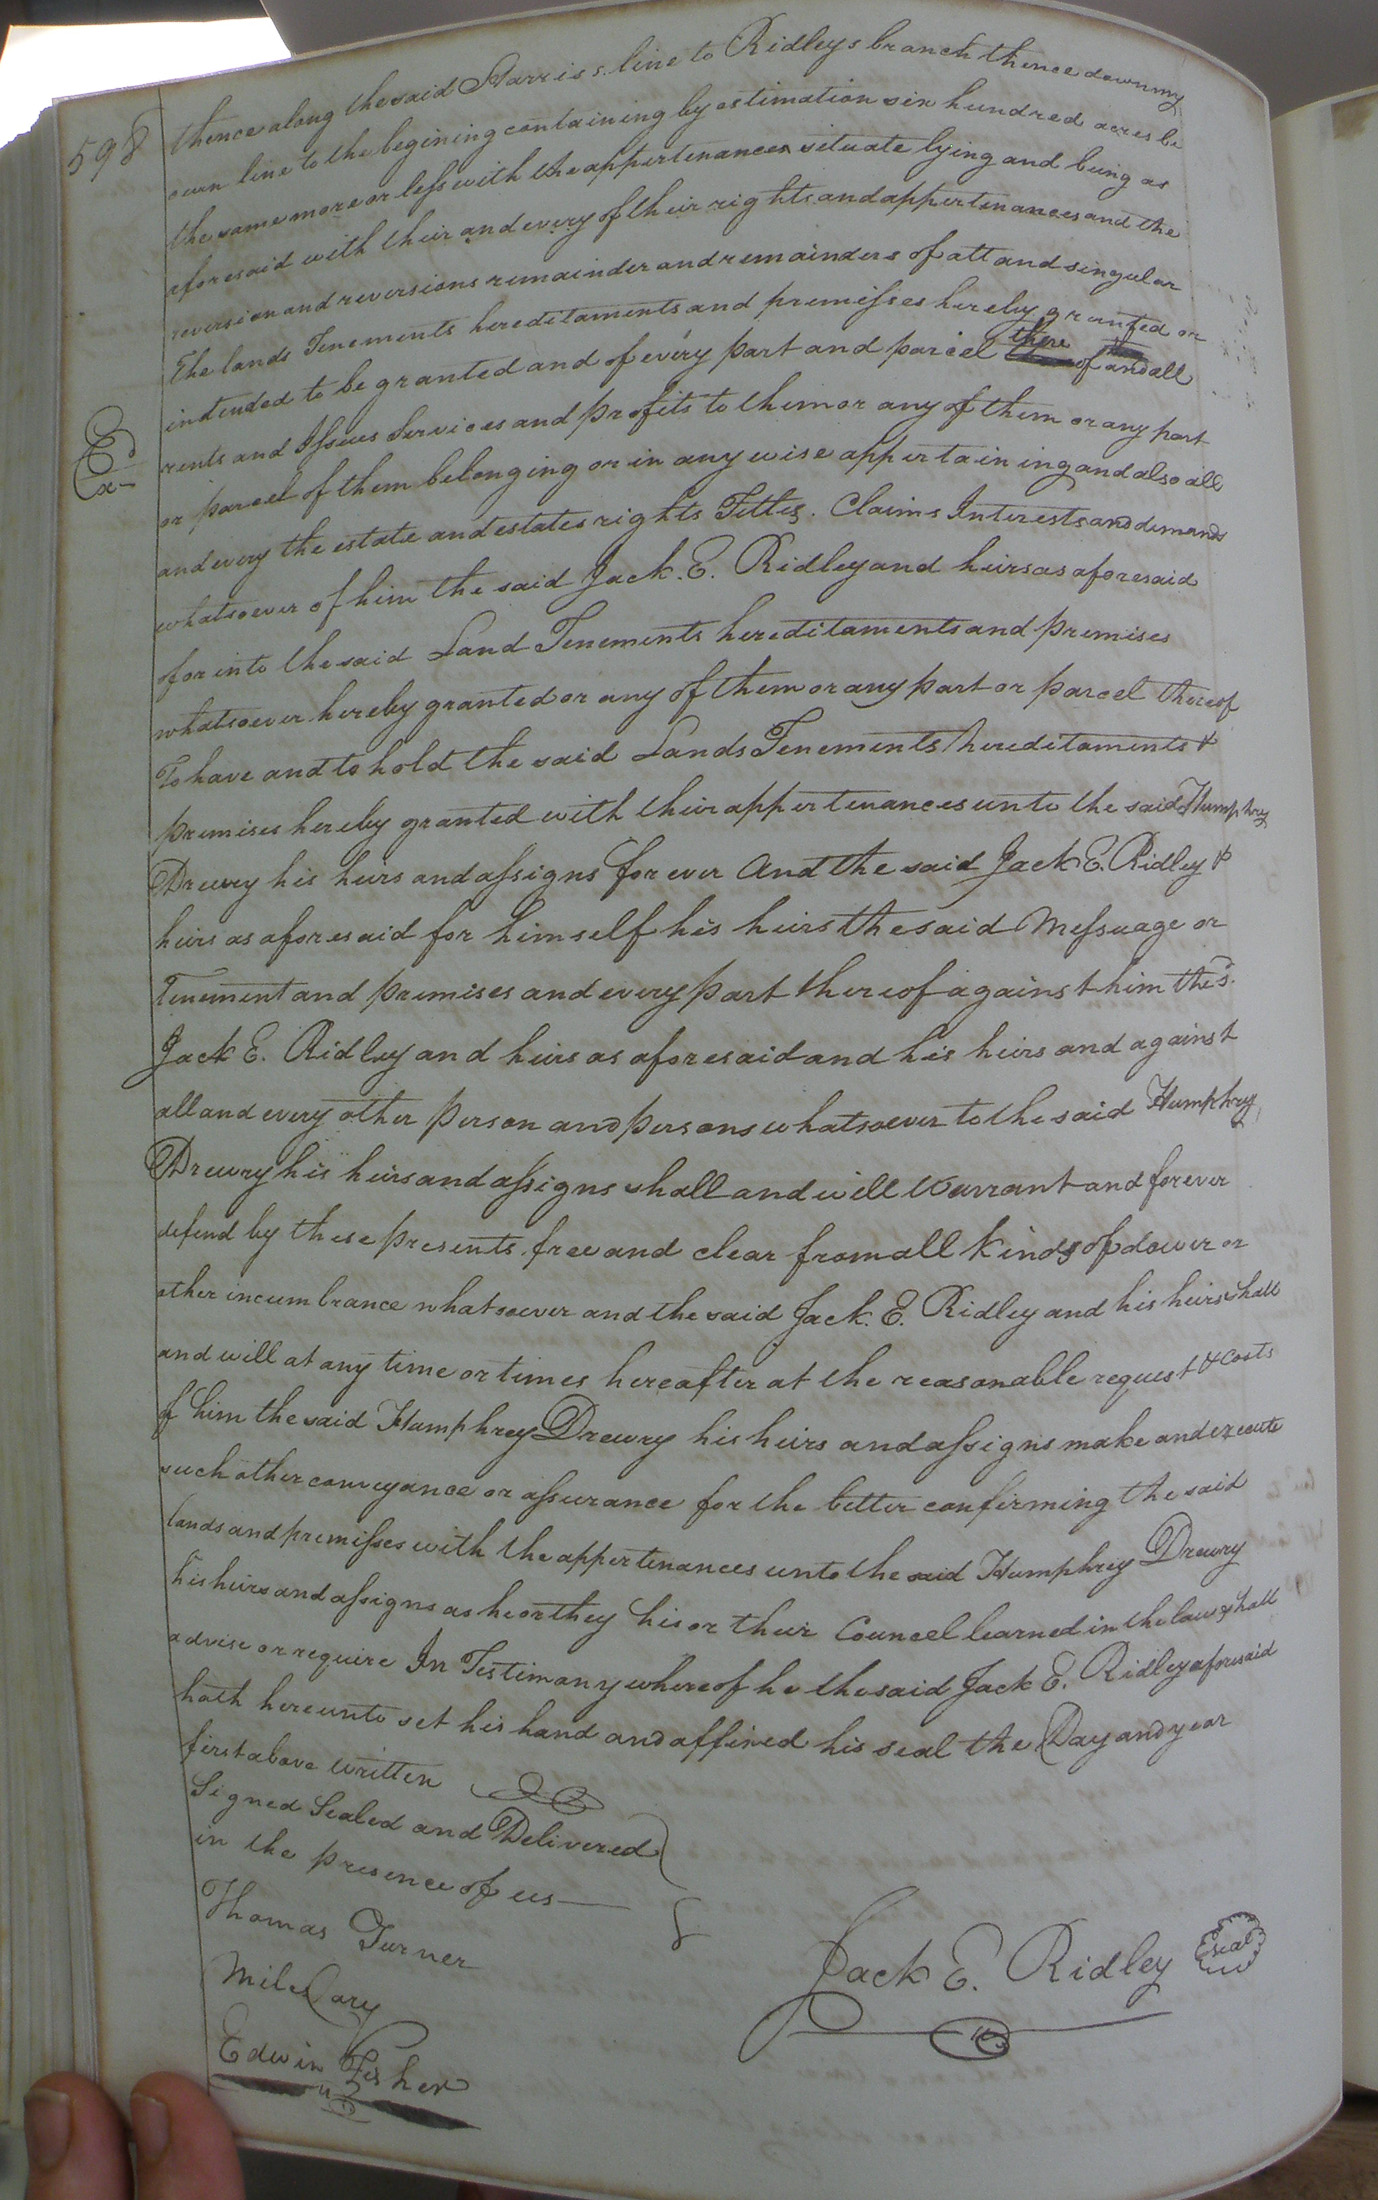 598
thence along the said Harris s. line to Ridleys branch thence down my
own line to the begining containing by estimation six hundred acres be
the same more or less with the appertenances situate lying and being as
aforesaid with their and every of their rights and appertenances and the
reversion and reversions remainder and remainders of all and singular
The lands Tenements hereditaments and premisses hereby granted or
intended to be granted and of every part and parcel there of and all
rents and Issues Services and profits to them or any of them or any part
Exd
or parcel of them belonging or in any wise appertaining and also all
and every the estate and estates rights Titles. Claims Interests and demands
whatsoever of him the said Jack. E. Ridley and heirs as aforesaid
of or into the said Land Tenements hereditaments and premises
whatsoever hereby granted or any of them or any part or parcel thereof
To have and to hold the said Lands Tenements hereditaments &
premises hereby granted with their appertenances unto the said Humphrey
Drewry his heirs and assigns for ever And the said Jack E. Ridley &
heirs as aforesaid for himself his heirs the said Messuage or
Tenement and premises and every part thereof against him the sd.
Jack E. Ridley and heirs as aforesaid and his heirs and against
all and every other person and persons whatsoever to the said Humphrey
Drewry his heirs and assigns shall and will Warrant and forever
defend by these presents free and clear from all kinds of dower or
other incumbrance whatsoever and the said Jack. E. Ridley and his heirs shall
and will at any time or times hereafter at the reasonable request & costs
of him the said Humphrey Drewry his heirs and assigns make and execute
such other conveyance or assurance for the better confirming the said
lands and premisses with the appertenances unto the said Humphrey Drewry
his heirs and assigns as he or they his or their Councel learned in the law shall
advise or require In Testimony whereof he the said Jack E. Ridley aforesaid
hath hereunto set his hand and affixed his seal the Day and year
first above written
Signed Sealed and Delivered
in the presence of us
Thomas Turner
Miles Cary
Edwin Fisher
Jack E. Ridley seal